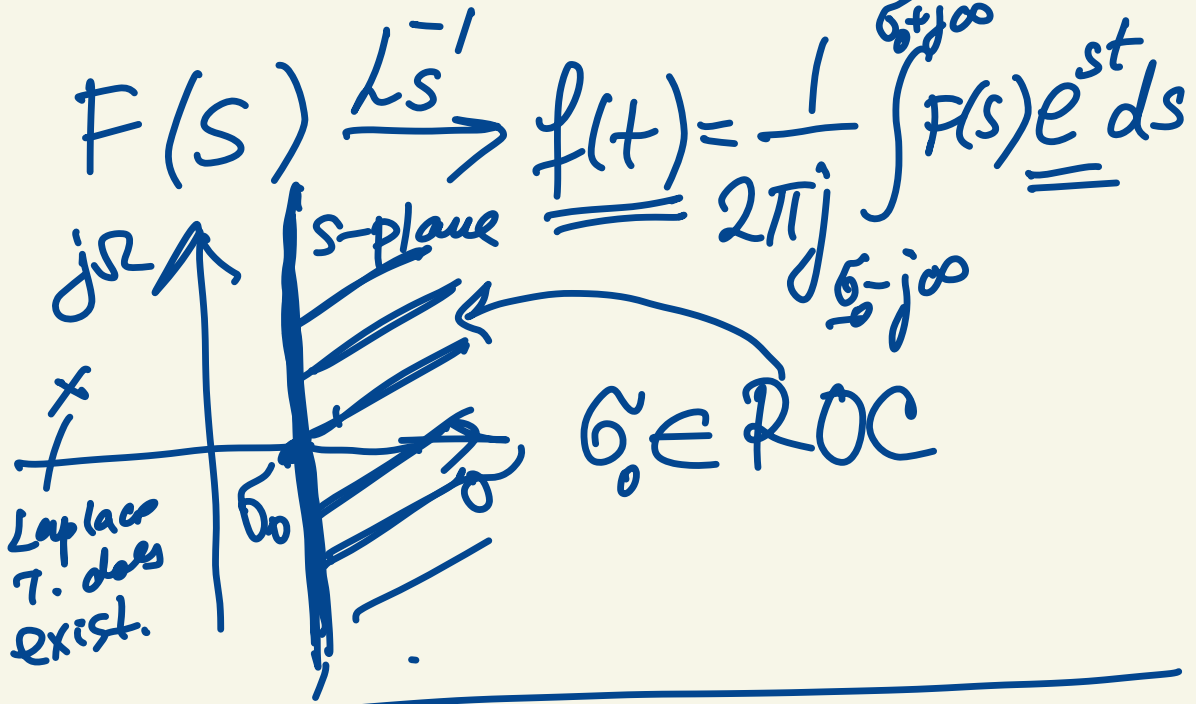 F(s) Ls⁻¹ → f(t) = 1/2πj ∫ σ₀-j∞ σ₀+j∞ F(s) e^{st} ds
jΩ
s-plane
x
σ₀ ∈ ROC
σ₀
σ
Laplace
T. does
exist.